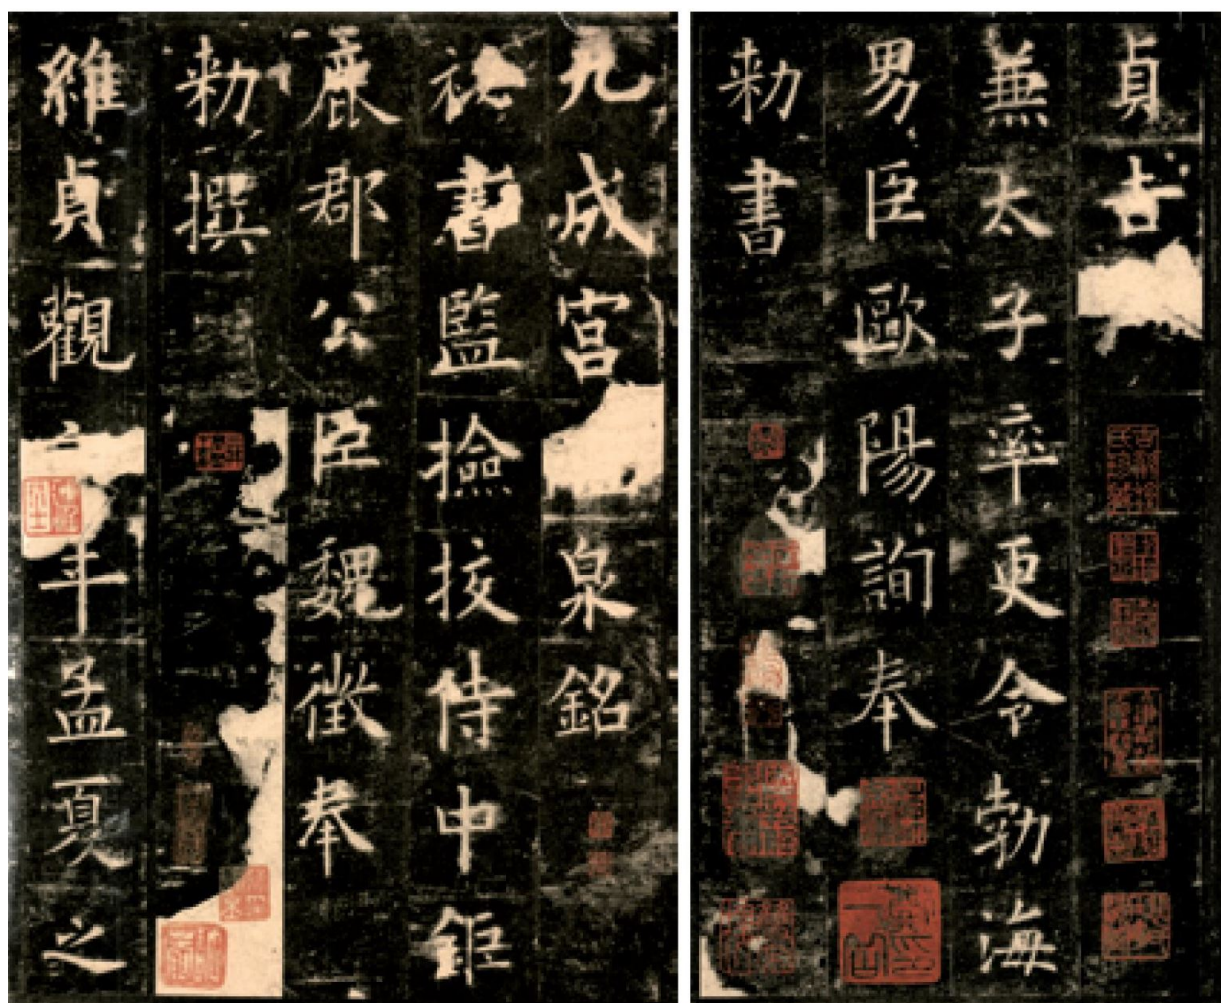 九成宮泉銘
祕書監撿挍侍中鉅
鹿郡公臣魏徵奉
勅撰
維貞觀年孟夏之
貞吉
兼太子率更令勃海
男臣歐陽詢奉
勅書